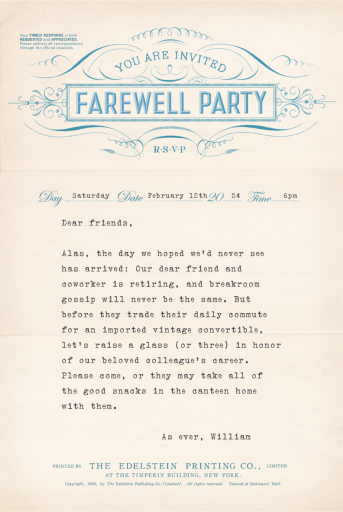 Your TIMELY RESPONSE is both
REQUESTED and APPRECIATED.
Please address all correspondence
through the official channels.
YOU ARE INVITED
FAREWELL PARTY
R·S·V·P
Day Saturday Date February 12th 20 24 Time 6pm
Dear friends,
Alas, the day we hoped we'd never see
has arrived: Our dear friend and
coworker is retiring, and breakroom
gossip will never be the same. But
before they trade their daily commute
for an imported vintage convertible,
let's raise a glass (or three) in honor
of our beloved colleague's career.
Please come, or they may take all of
the good snacks in the canteen home
with them.
As ever, William
PRINTED BY THE EDELSTEIN PRINTING CO., LIMITED
AT THE TIMPERLY BUILDING, NEW YORK.
Copyright, by The Edelstein Publishing Co. (Limited). All rights reserved. at Stationers' Hall.